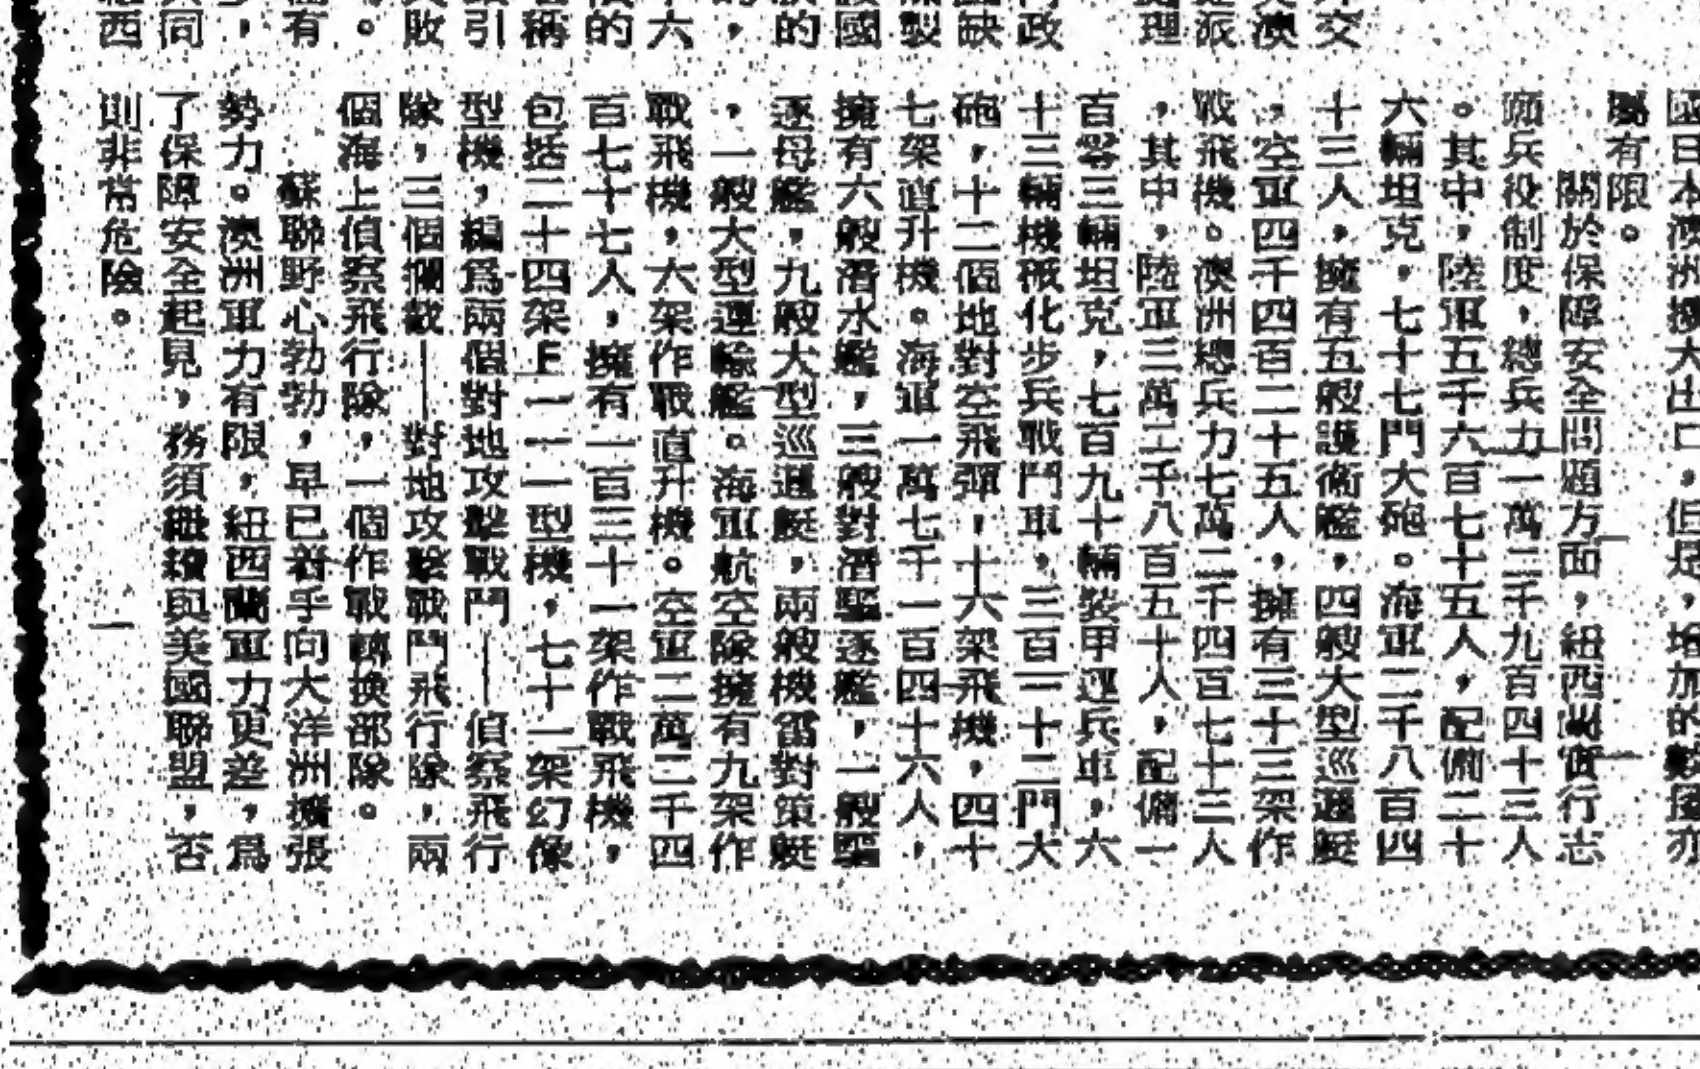 國日本澳洲擴大出口，但是，增加的數量亦
屬有限。
關於保障安全問題方面，紐西蘭實行志
願兵役制度，總兵力一萬二千九百四十三人
。其中，陸軍五千六百七十五人，配備二十
六輛坦克，七十七門大砲。海軍二千八百四
十三人，擁有五艘護衛艦，四艘大型巡邏艇
，空軍四千四百二十五人，擁有三十三架作
戰飛機。澳洲總兵力七萬二千四百七十三人
，其中，陸軍三萬二千八百五十人，配備一
百零三輛坦克，七百九十輛裝甲運兵車，六
十三輛機械化步兵戰鬥車，三百一十二門大
砲，十二個地對空飛彈，十六架飛機，四十
七架直升機。海軍一萬七千一百四十六人，
擁有六艘潛水艦，三艘對潛驅逐艦，一艘驅
逐母艦，九艘大型巡邏艇，兩艘機雷對策艇
，一艘大型運輸艦。海軍航空隊擁有九架作
戰飛機，六架作戰直升機。空軍二萬二千四
百七十七人，擁有一百三十一架作戰飛機，
包括二十四架Ｆ一一一型機，七十一架幻像
型機，編為兩個對地攻擊戰鬥——偵察飛行
隊，三個攔截——對地攻擊戰鬥飛行隊，兩
個海上偵察飛行隊，一個作戰轉換部隊。
蘇聯野心勃勃，早已着手向大洋洲擴張
勢力。澳洲軍力有限，紐西蘭軍力更差，為
了保障安全起見，務須繼續與美國聯盟，否
則非常危險。